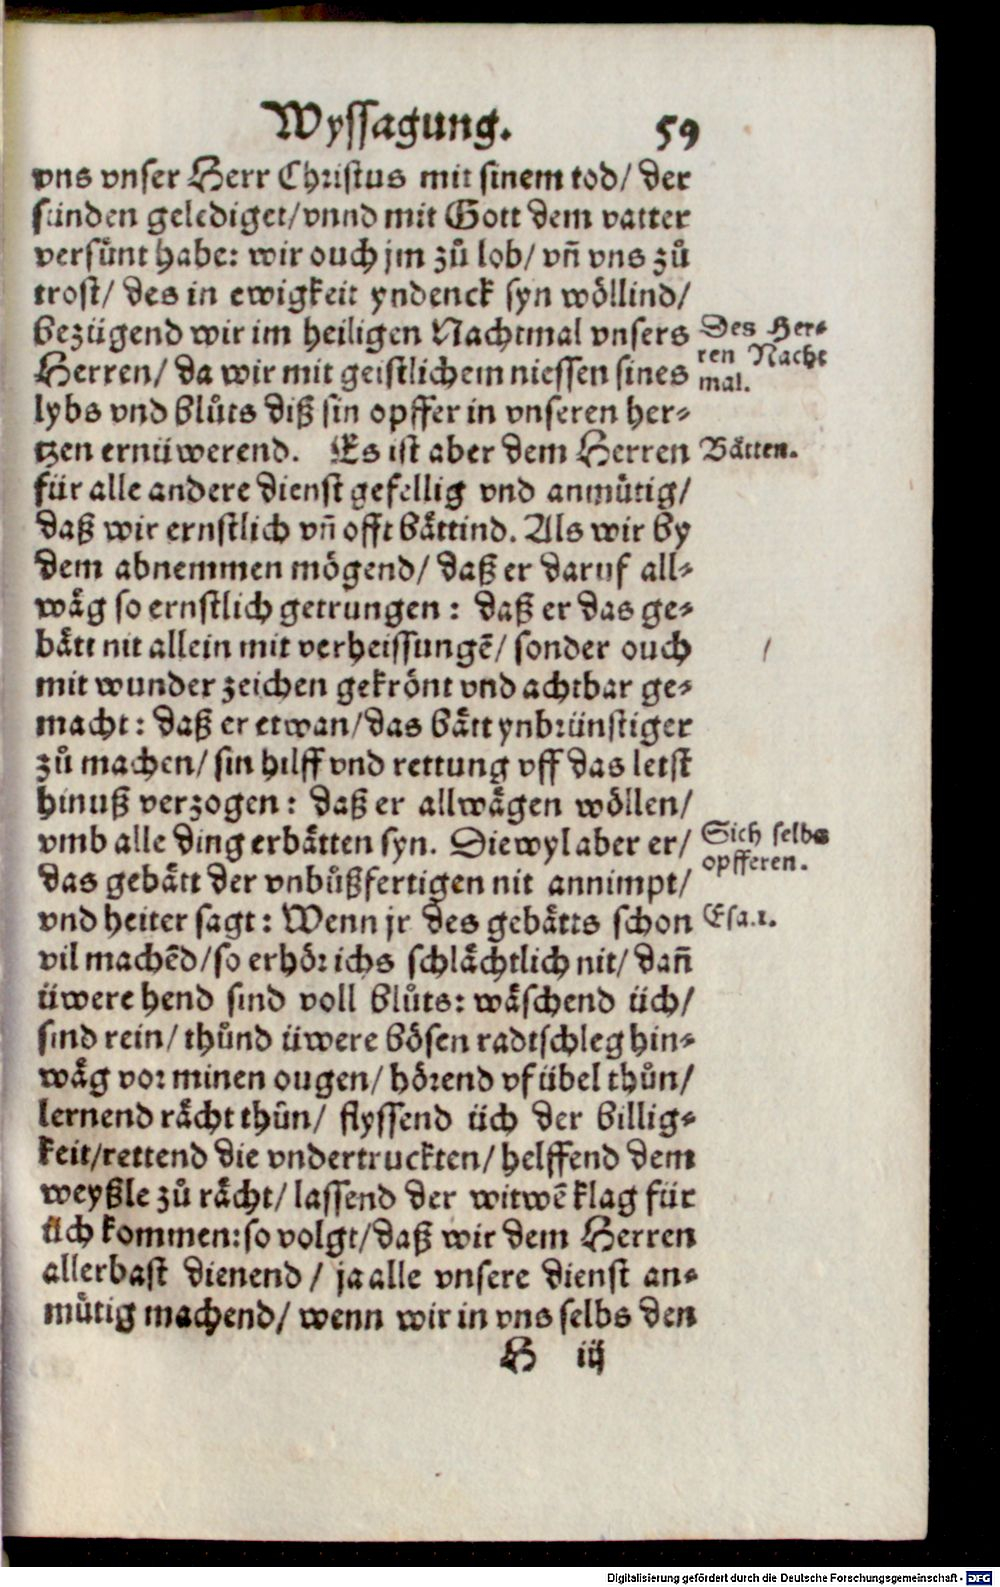 Wyssagung. 59
vns vnser Herr Christus mit sinem tod/ der
sünden gelediget/ vnnd mit Gott dem vatter
versůnt habe: wir ouch jm zů lob/ vn̄ vns zů
trost/ des in ewigkeit yndenck syn wöllind/
bezügend wir im heiligen Nachtmal vnsers
Des Her⸗
ren Nacht
mal.
Herren/ da wir mit geistlichem niessen sines
lybs vnd blůts diß sin opffer in vnseren her⸗
tzen ernüwerend. Es ist aber dem Herren
Bätten.
für alle andere dienst gefellig vnd anmůtig/
daß wir ernstlich vn̄ offt bättind. Als wir by
dem abnemmen mögend/ daß er daruf all⸗
wäg so ernstlich getrungen: daß er das ge⸗
bätt nit allein mit verheissungē/ sonder ouch
mit wunder zeichen gekrönt vnd achtbar ge⸗
macht: daß er etwan/ das bätt ynbrünstiger
zů machen/ sin hilff vnd rettung vff das letst
hinuß verzogen: daß er allwägen wöllen/
vmb alle ding erbätten syn. Diewyl aber er/
Sich selbs
opfferen.
das gebätt der vnbůßfertigen nit annimpt/
vnd heiter sagt: Wenn jr des gebätts schon
Esa.1.
vil machēd/ so erhör ichs schlächtlich nit/ dañ
üwere hend sind voll blůts: wäschend üch/
sind rein/ thůnd üwere bösen radtschleg hin⸗
wäg vor minen ougen/ hörend vf übel thůn/
lernend rächt thůn/ flyssend üch der billig⸗
keit/ rettend die vndertruckten/ helffend dem
weyßle zů rächt/ lassend der witwē klag für
üch kommen: so volgt/ daß wir dem Herren
allerbast dienend/ ja alle vnsere dienst an⸗
můtig machend/ wenn wir in vns selbs den
H iij
Digitalisierung gefördert durch die Deutsche Forschungsgemeinschaft - DFG